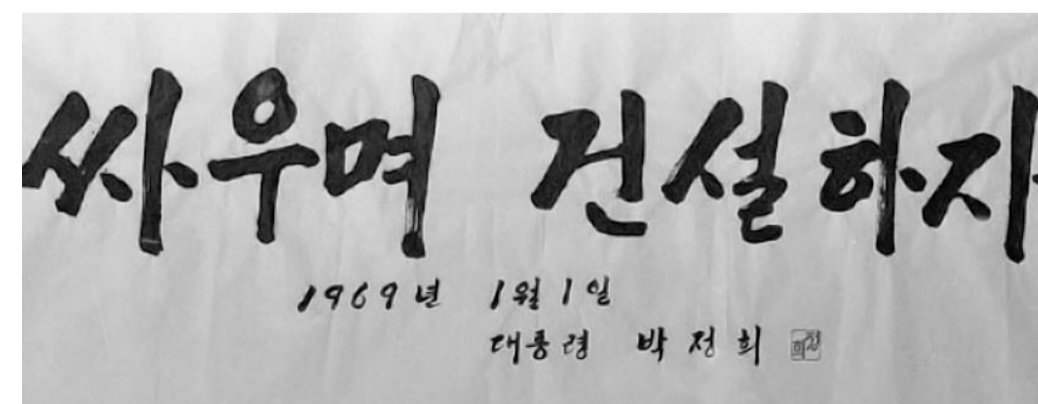 싸우며 건설하자
1969년 1월 1일
대통령 박정희
정희